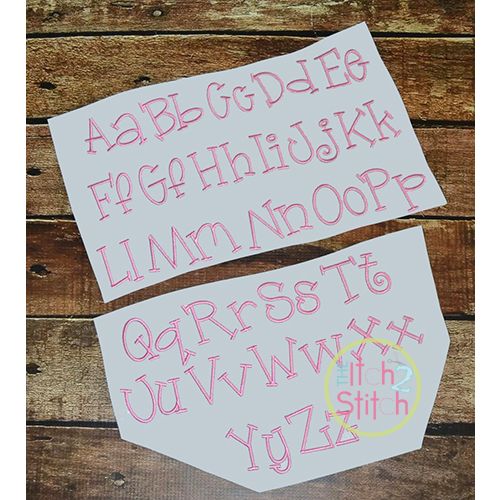 AaBbCcDdEe
FfGgHhIiJjKk
LlMmNnOoPp
QqRrSsTt
UuVvWwXx
YyZz
THE Itch 2 Stitch